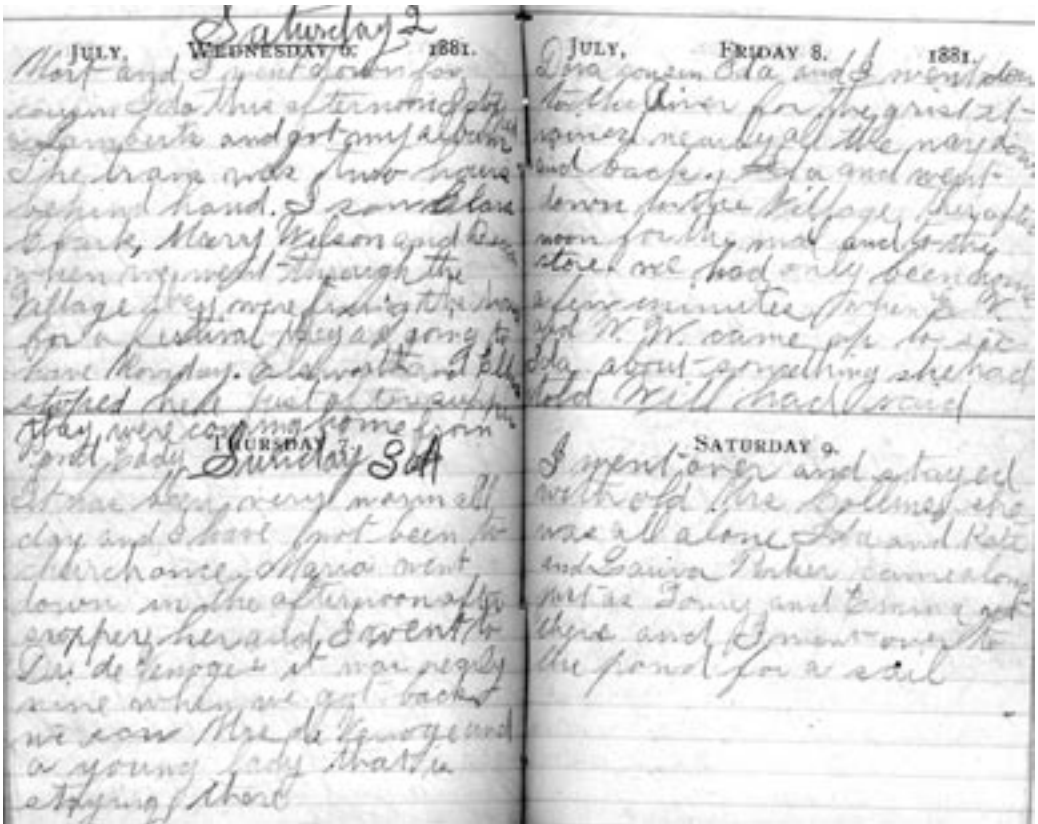 Saturday 2
JULY, WEDNESDAY 6. 1881.
Mort and I went down for
cousin Ida this afternoon I
and got my album
The train was two hours
behind hand. I saw Clara
Clark, Mary Wilson and
when we went through the
Village they were fixing the
for a festival they are going to
have Monday. and
stoped here just after supper
they were coming home from
THURSDAY 7.
Sunday 3d
It has been very warm all
day and I have not been to
church once. Maria went
down in the afternoon after
supper her and I went to
it was nearly
nine when we got back
we saw Mrs de and
a young lady that is
staying there
JULY, FRIDAY 8. 1881.
cousin Ida and I went down
to the River for the grist it
nearly all the way down
and back. Ida and went
down to the Village this after
noon for the mail and to the
store. we had only been home
a few minutes when W.
and W. W. came up to see
Ida about something she had
told Will had said
SATURDAY 9.
I went over and stayed
with old Mrs she
was all alone Ida and Kate
and Laura Parker came along
and Emma got
there and I went over to
the pond for a sail